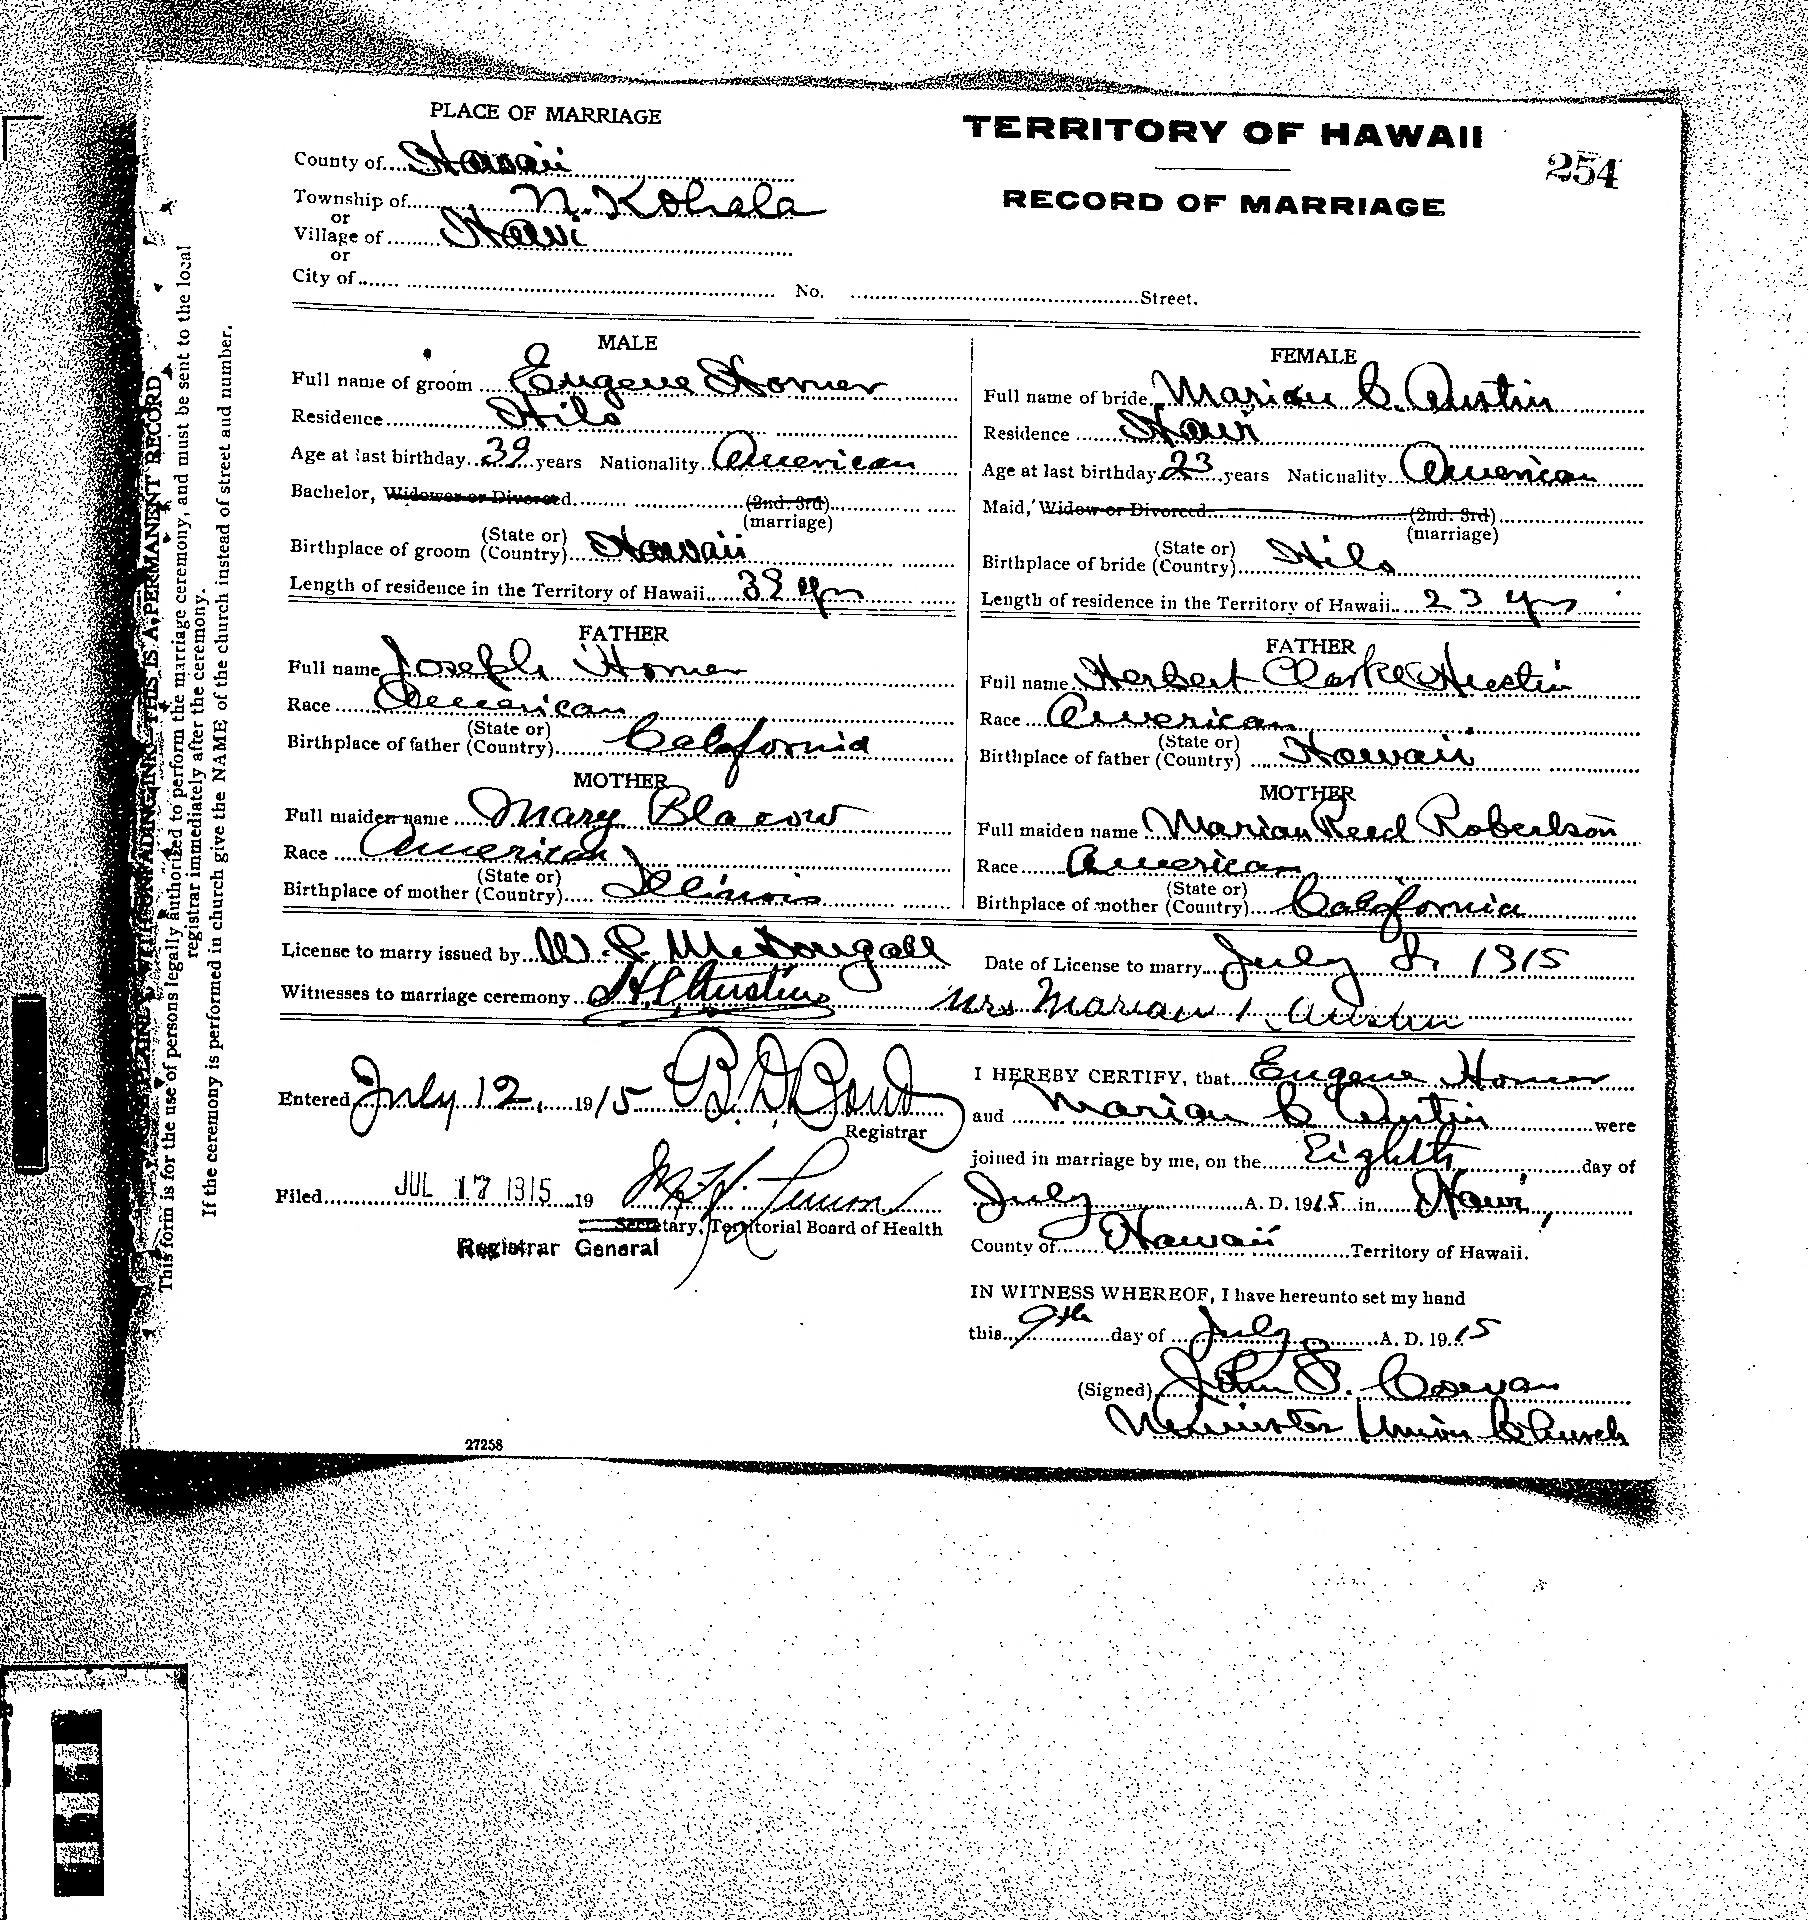 PLACE OF MARRIAGE
TERRITORY OF HAWAII
254
RECORD OF MARRIAGE
County of Hawaii
Township of N. Kohala
or
Village of Hawi
or
City of No. Street.
MALE
Full name of groom Eugene Horner
Residence Hilo
Age at last birthday 39 years Nationality American
Bachelor, Widower or Divorced. (2nd. 3rd)
(marriage)
Birthplace of groom (State or) (Country) Hawaii
Length of residence in the Territory of Hawaii 39 yrs
FATHER
Full name Joseph Horner
Race American
Birthplace of father (State or) (Country) California
MOTHER
Full maiden name Mary Blacow
Race American
Birthplace of mother (State or) (Country) Illinois
FEMALE
Full name of bride Marian C. Austin
Residence Hawi
Age at last birthday 23 years Nationality American
Maid, Widow or Divorced (2nd. 3rd)
(marriage)
Birthplace of bride (State or) (Country) Hilo
Length of residence in the Territory of Hawaii 23 yrs
FATHER
Full name Herbert Clarke Austin
Race American
Birthplace of father (State or) (Country) Hawaii
MOTHER
Full maiden name Marian Reed Robertson
Race American
Birthplace of mother (State or) (Country) California
License to marry issued by W. P. McDougall Date of License to marry July 8, 1915
Witnesses to marriage ceremony H C Austin Mrs Marian Austin
Entered July 12, 1915 B. D. Bond
Registrar
Filed JUL 17 1915 19
Secretary, Territorial Board of Health
Registrar General
I HEREBY CERTIFY, that Eugene Horner
and Marian C Austin were
joined in marriage by me, on the Eighth day of
July A. D. 1915 in Hawi,
County of Hawaii Territory of Hawaii.
IN WITNESS WHEREOF, I have hereunto set my hand
this 9th day of July A. D. 1915
(Signed) John F. Cowan
Minister Union Church
27258
WITH UNFADING INK—THIS IS A PERMANENT RECORD
This form is for the use of persons legally authorized to perform the marriage ceremony, and must be sent to the local
registrar immediately after the ceremony.
If the ceremony is performed in church give the NAME of the church instead of street and number.